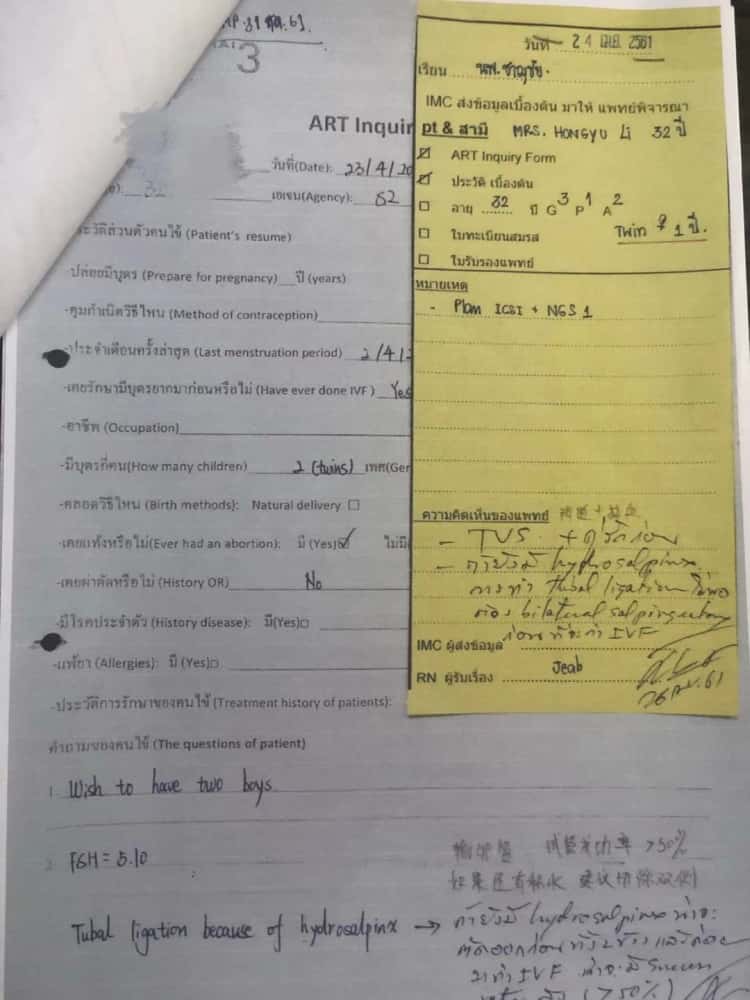 3
ART Inquir
วันที่(Date): 23/4/20
32
เอเยน(Agency): S2
ระวัติส่วนตัวคนไข้ (Patient's resume)
-ปล่อยมีบุตร (Prepare for pregnancy) ปี (years)
-คุมกำเนิดวิธีไหน (Method of contraception)
-ประจำเดือนครั้งล่าสุด (Last menstruation period) 2/4/2
-เคยรักษามีบุตรยากมาก่อนหรือไม่ (Have ever done IVF ) Yes
-อาชีพ (Occupation)
-มีบุตรกี่คน(How many children) 2 (twins) เพศ(Ger
-คลอดวิธีไหน (Birth methods): Natural delivery ☐
-เคยแท้งหรือไม่(Ever had an abortion): มี (Yes)☑ ไม่มี
-เคยผ่าตัดหรือไม่ (History OR) No
-มีโรคประจำตัว (History disease): มี(Yes)☐
-แพ้ยา (Allergies): มี (Yes)☐
-ประวัติการรักษาของคนไข้ (Treatment history of patients):
คำถามของคนไข้ (The questions of patient)
1. Wish to have two boys
2. FSH = 5.10
Tubal ligation because of hydrosalpinx → ถ้ายังมี hydrosalpinx น่าจะ
ตัดออกก่อนทั้ง 2 ข้าง และค่อย
มาทำ IVF
(>50%)
输卵管 试管成功率 >50%
如果还有积水 建议切除双侧
วันที่ 24 เม.ย. 2561
เรียน นพ.ชาญชัย.
IMC ส่งข้อมูลเบื้องต้น มาให้ แพทย์พิจารณา
pt & สามี MRS. HONGYU Li 32 ปี
☑ ART Inquiry Form
☑ ประวัติ เบื้องต้น
☐ อายุ 32 ปี G3 P1 A2
☐ ใบทะเบียนสมรส Twin ♀ 1 ปี.
☐ ใบรับรองแพทย์
หมายเหตุ
- Plan ICSI + NGS 1
ความคิดเห็นของแพทย์
- TVS + ดูรังไข่ก่อน
- ถ้ายังมี hydrosalpinx
การทำ tubal ligation ไม่พอ
ต้อง bilateral salpingectomy
ก่อนที่จะทำ IVF
IMC ผู้ส่งข้อมูล
RN ผู้รับเรื่อง Jeab
26 เม.ย. 61